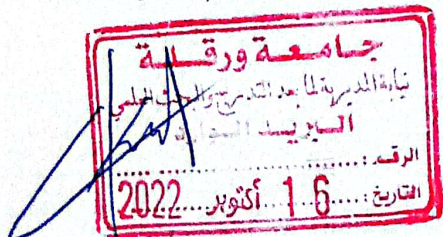 جامعة ورقلة
نيابة المديرية لما بعد التدرج والبحث العلمي
البريد الوارد
الرقم:
التاريخ: 16 أكتوبر 2022